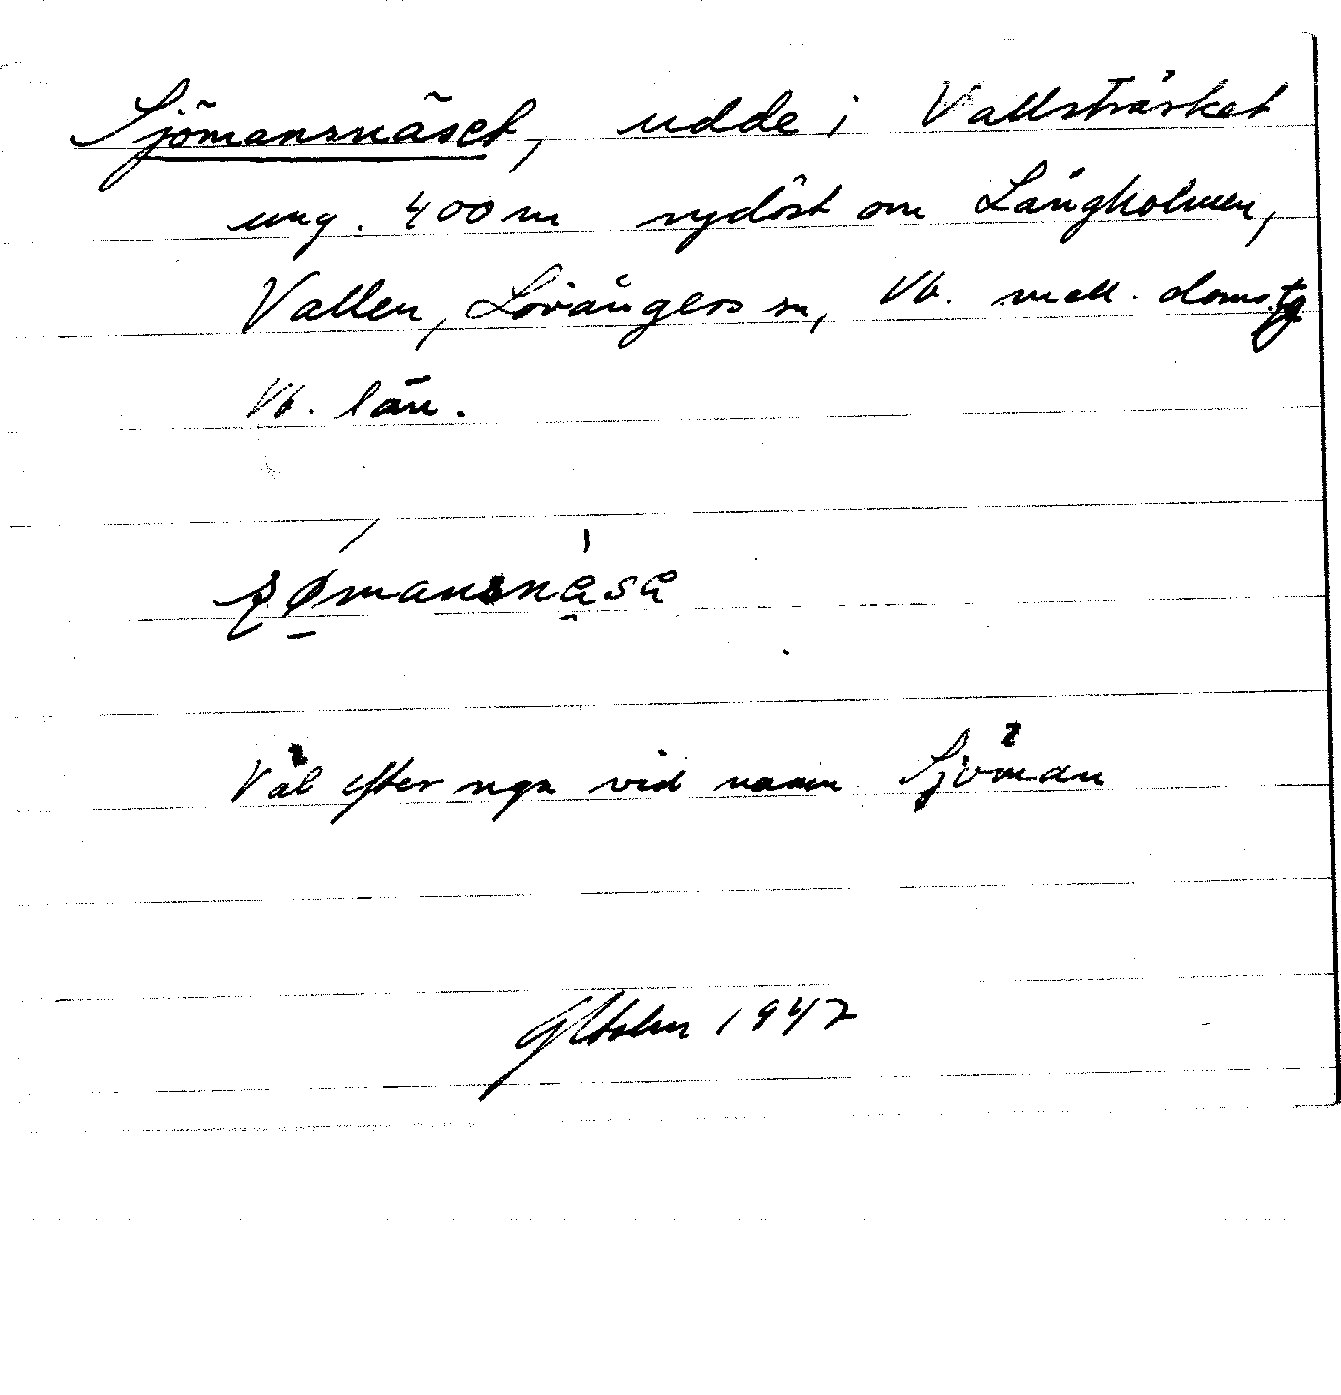 Sjömansnäset, udde i Vallsträsket
ung. 400 m sydöst om Långholmen,
Vallen, Lövångers sn, Vb. mell. doms.tg
Vb. län.
Väl efter ngn vid namn Sjöman
Holm 1947